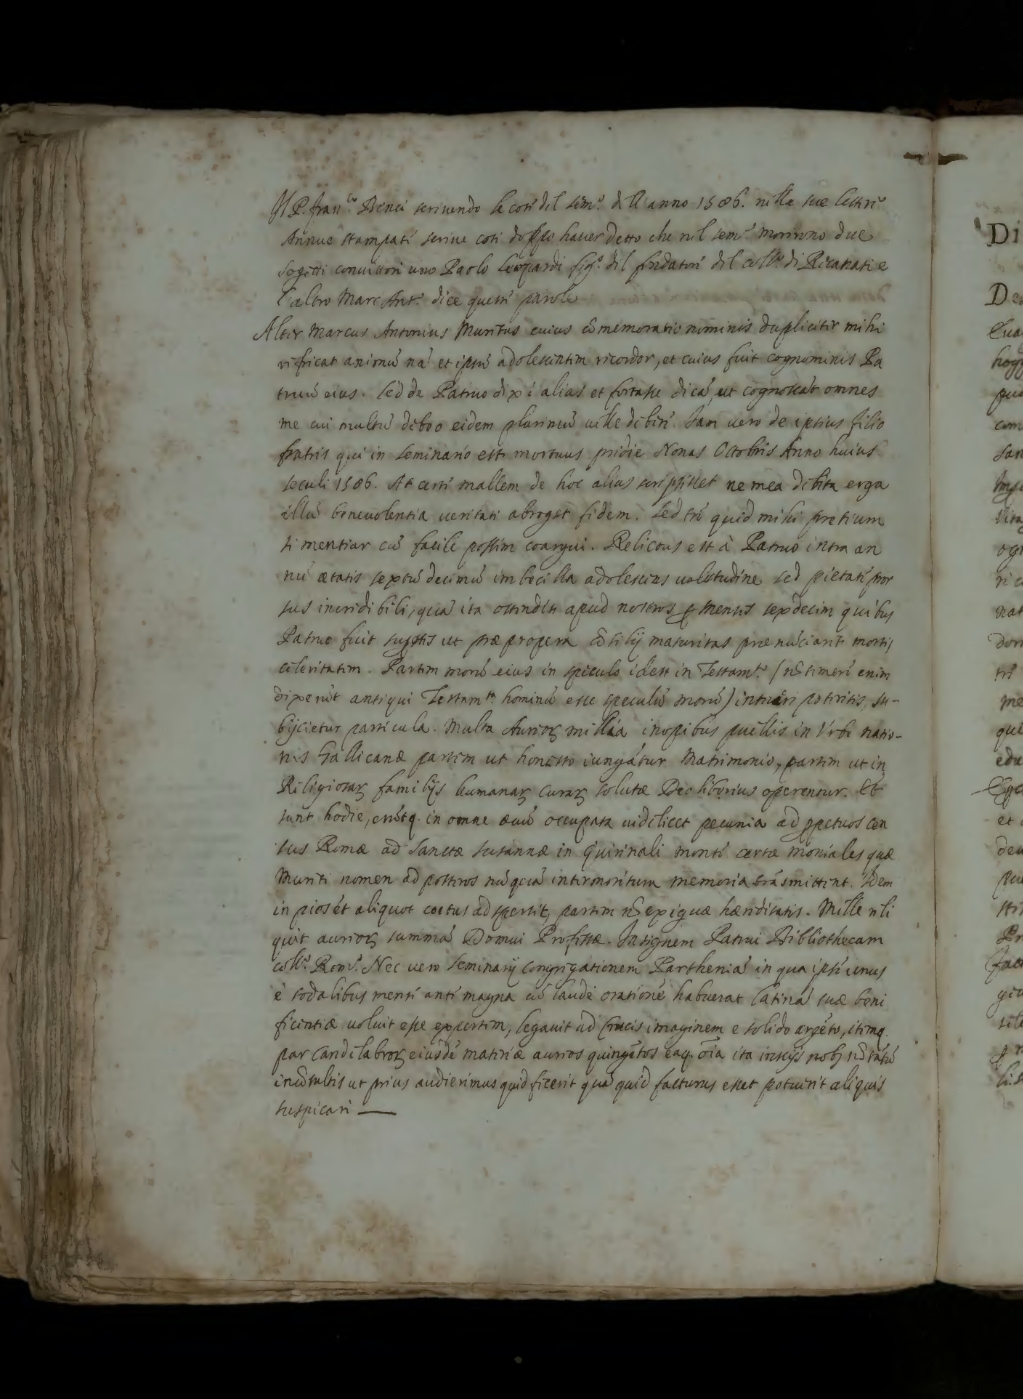 Il P. Fran.co Benci scrivendo le cose del sem.o dell'anno 1586. nelle sue lettere
Annue stampati scrive cosi dopo haver detto che nel sem.o morirono due
sogetti convittori uno Paolo Leopardi fig.o del fondatore del coll.o di Recanati e
l'altro Marc Ant.o dice queste parole
Alter Marcus Antonius Muretus cuius cōmemoratio nominis dupliciter mihi
refricat animū nā et ipsū adolescentem recordor, et cuius fuit cognominis Pa
truū eius. Sed de Patruo dixi alias et fortasse dicā, ut cognoscāt omnes
me cui multū debeo eidem plurimū velle debere. Iam vero de ipsius filio
fratris qui in seminario est mortuus pridie Nonas Octobris Anno huius
seculi 1586. At certe mallem de hoc alius scripsisset ne mea debita erga
illū benevolentia veritati abroget fidem. Sed trī quid mihi pretium
si mentiar cū facile possim coargui. Relictus est à Patruo intra an
nū ætatis septū decimū imbecilla adolescens valetudine sed pietate pror
sus incredibili, quā ita ostendit apud nostros menses sexdecim quibus
Patruo fuit supstes ut præpropera cōsilij maturitas prenūciarit mortis
celeritatem. Partem morū eius in speculo idest in Testam.to (nō temere enim
dixerūt antiqui Testam.tū hominū esse speculū morū) intueri poteritis, su-
bijcietur particula. Multa Aureorꝝ millia inopibus puellis in Vrbe natio-
nis Gallicanæ partim ut honesto iungātur Matrimonio, partim ut in
Religiosarꝝ familijs humanarꝝ curarꝝ solutæ Deo liberius operentur. Et
sunt hodie, erūtq. in omne ævū occupata videlicet pecunia ad ppetuos cen
sus Romæ ad Sanctæ Susannæ in Quirinali monte certæ moniales quæ
Mureti nomen ad posteros nūquā intermoritura memoria trāsmittent. Idem
in pios et aliquot coetus adspersit partem nō exiguæ hæreditatis. Mille reli
quit aureorꝝ summā Domui Professæ. Insignem Patrui Bibliothecam
coll.o Rom.o. Nec vero seminarij congregationem Partheniā in qua ipse unus
è sodalibus mense ante magna cū laude orationē habuerat latinā suæ bene
ficentiæ voluit esse expertem, legavit ad crucis imaginem e solido argēto, itemq.
par candelabrorꝝ eiusdē materiæ aureos quingētos eaq. ōia ita insciis nobis nō tātū
incōsultis ut prius audierimus quid fecerit quā quid facturus esset potuerit aliquis
suspicari
Di